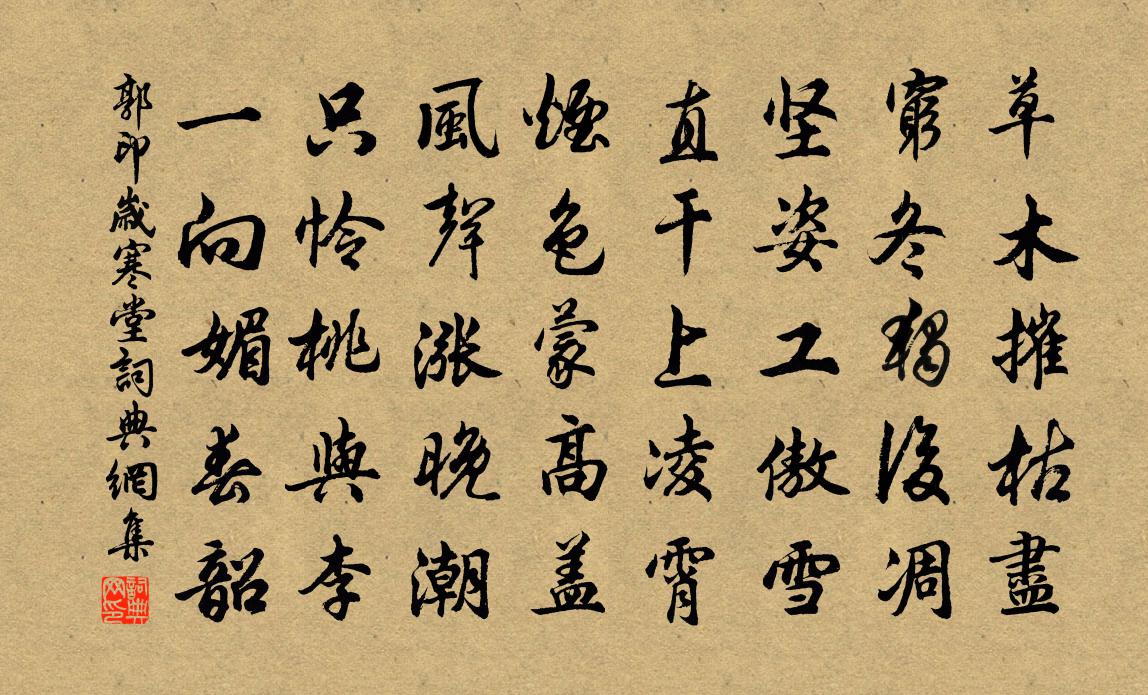 草木摧枯盡
窮冬獨後凋
坚姿工傲雪
直干上凌霄
煙色蒙高盖
風聲漲晚潮
只怜桃與李
一向媚春韶
郭印歲寒堂詞典網集
詞典网印